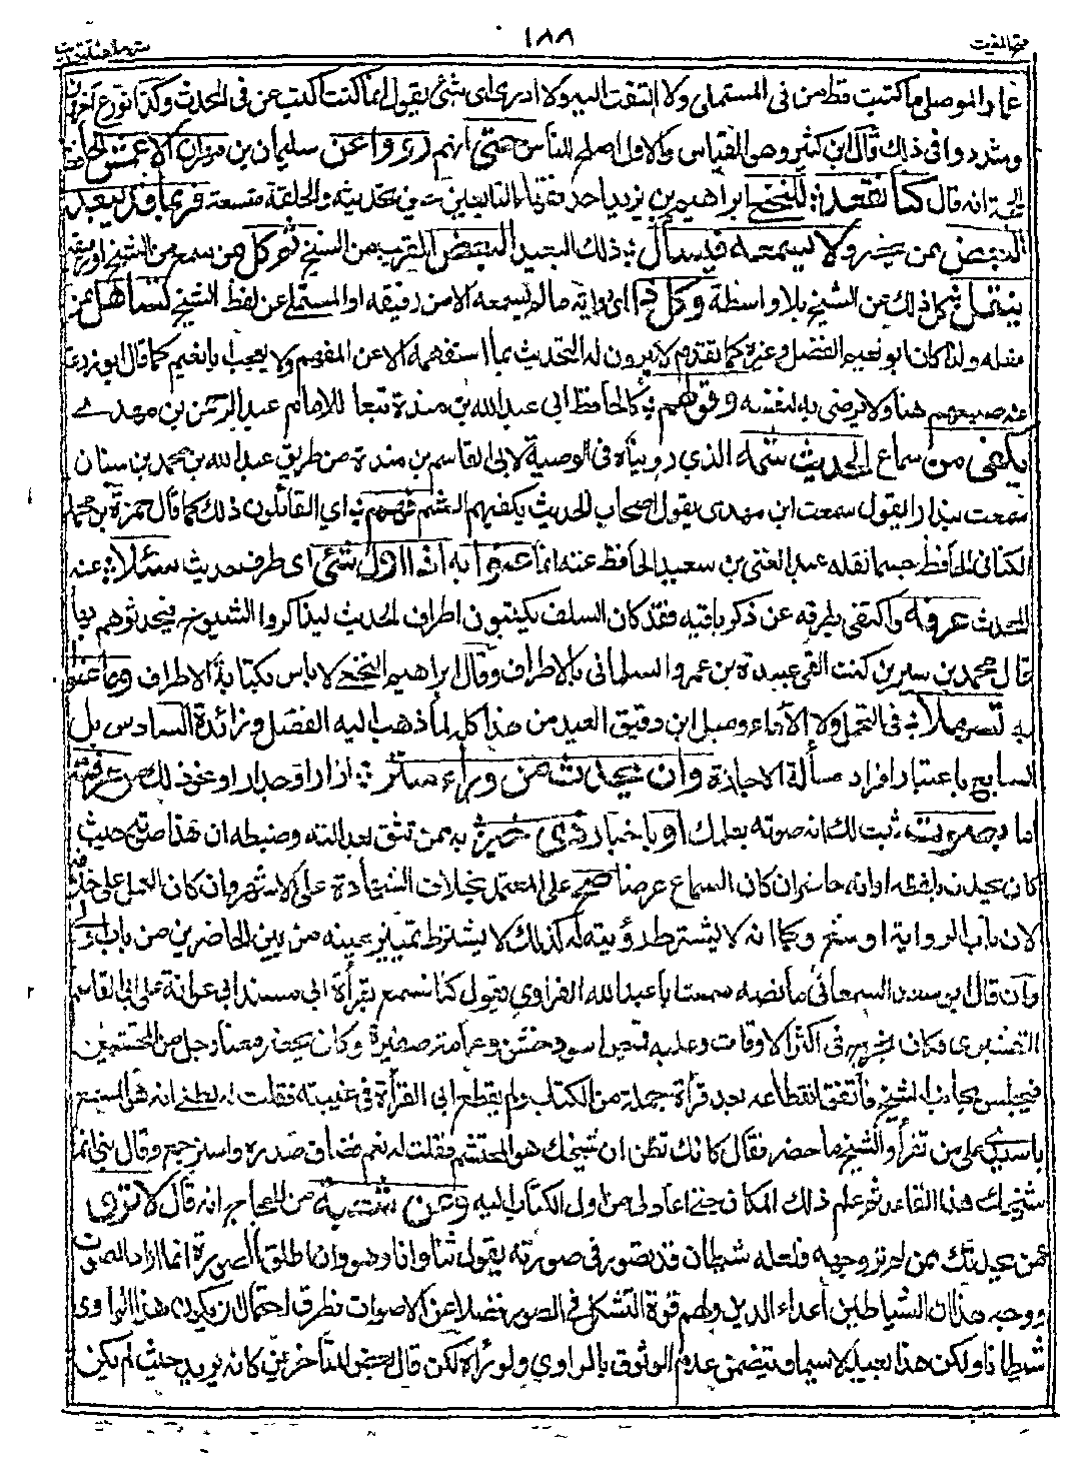 ١٨٨
فتح المغيث
عمار الموصلي ما كتبت قط من في المستملي ولا التفت اليه ولا ادري اي شئ يقول انما كنت اكتب عن في المحدث وكذا تورع اخرون
وشددوا في ذلك قال ابن كثير وهو القياس والاول اصلح للناس حتى انهم رووا عن سليمان بن مهران الاعمش الحافظ
الحجة انه قال كنا نقعد للنخعي ابراهيم بن يزيد احد فقهاء التابعين حين تحديثه والحلقة متسعة فربما قد يبعد
البعض ممن يحضر ولا يسمعه فيسأل ذلك البعيد البعض القريب من الشيخ ثم كل من سمع من الشيخ او رفيقه
ينقل كل ذلك عن الشيخ بلا واسطة وكل ذا اي رواية ما لم يسمعه الا من رفيقه او المستملي عن لفظ الشيخ تساهل ممن
فعله ولذا كان ابو نعيم الفضل وغيره كما تقدم لا يرون له التحديث بما استفهمه الا عن المفهم ولا يعجب ابا نعيم كما قال ابو زرعة
عنه صنيعهم هذا ولا يرضى به لنفسه وقولهم كالحافظ ابي عبد الله بن مندة تبعا للامام عبد الرحمن بن مهدي
يكفي من سماع الحديث شمه الذي رويناه في الوصية لابي القاسم بن مندة من طريق عبد الله بن محمد بن سنان
سمعت بندارا يقول سمعت ابن مهدي يقول اصحاب الحديث يكفيهم الشم فهم اي القائلون ذلك كما قال حمزة بن محمد
الكناني الحافظ حسبما نقله عبد الغني بن سعيد الحافظ عنه انما عنوا به اذا اول شئ اي طرف حديث سئلا عنه
المحدث عرفه واكتفى بطرفه عن ذكر باقيه فقد كان السلف يكتبون اطراف الحديث ليذاكروا الشيوخ فيحدثوهم بها
قال محمد بن سيرين كنت القى عبيدة بن عمرو السلماني بالاطراف وقال ابراهيم النخعي لا باس بكتابة الاطراف وما عنوا
به تسهلا في التحمل ولا الاداء وميل ابن دقيق العيد من هذا كله لما ذهب اليه الفضل وزائدة السادس بل
السابع باعتبار افراد مسألة الاجازة وان يحدث من وراء ستر ازار او جدار او نحو ذلك من عرفته
اما بصوت ثبت لك انه صوته بعلمك او باخبار ذي خبرة به ممن تثق بعدالته وضبطه ان هذا صوته حيث
كان يحدث بلفظه او انه حاضر ان كان السماع عرضا صح على المعتمد بخلاف الشهادة على الاشهر وان كان العمل على خلافه
لان باب الرواية اوسع وكما انه لا يشترط رؤيته له كذلك لا يشترط تمييز عينه من بين الحاضرين من باب اولى
وان قال ابن سعد السمعاني ما نصه سمعت ابا عبد الله الفراوي يقول كنا نسمع بقرأة ابي مسند ابي عوانة على ابي القاسم
القشيري فكان يخرج في اكثر الاوقات وعليه قميص اسود خشن وعمامة صغيرة وكان يحضر معنا رجل من المحتشمين
فيجلس بجانب الشيخ فاتفق انقطاعه بعد قرأة جملة من الكتاب ولم يقطع ابي القرأة في غيبته فقلت له لظني انه هو المسمع
يا سيدي على من تقرأ والشيخ ما حضر فقال كانك تظن ان شيخك هو المحتشم فقلت له نعم فضاق صدره واسترجع وقال يا بني انما
شيخك هذا القاعد ثم علم ذلك المكان حتى اعاد لي من اول الكتاب اليه وعن شعبة من الحجاج انه قال لا ترو
عمن يحدثك ممن لم تر وجهه فلعله شيطان قد تصور في صورته يقول ثنا وانا وهو وان اطلق الصورة انما اراد الصوت
ووجه هذا ان الشياطين اعداء الدين ولهم قوة التشكل في الصور فضلا عن الاصوات فطرق احتمال ان يكون هذا الراوي
شيطانا ولكن هذا بعيد لا سيما ويتضمن عدم الوثوق بالراوي ولو رآه لكن قال بعض المتأخرين كانه يريد حيث لم يكن